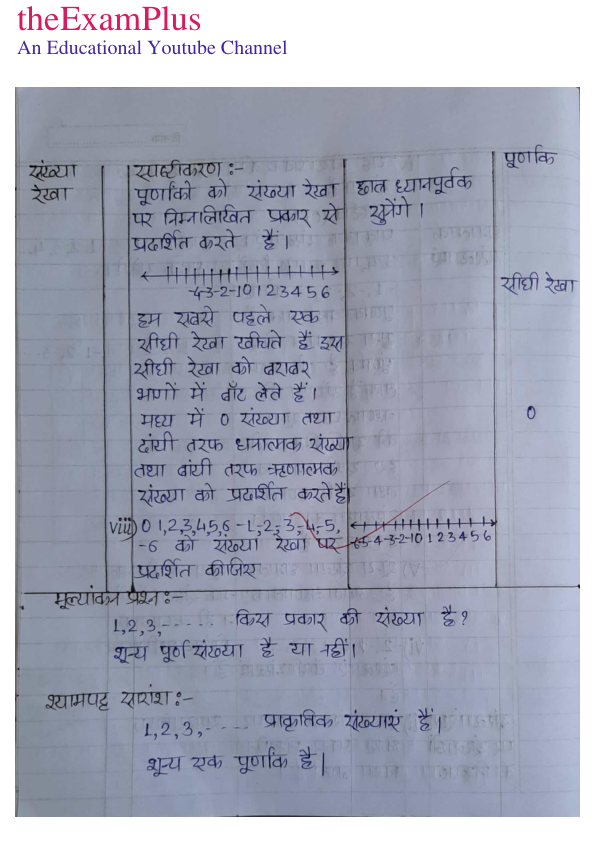 theExamPlus
An Educational Youtube Channel
संख्या
रेखा
स्पष्टीकरण :-
पूर्णांको को संख्या रेखा
पर निम्नलिखित प्रकार से
प्रदर्शित करते हैं।
-4-3-2-10 1 2 3 4 5 6
हम सबसे पहले एक
सीधी रेखा खींचते हैं इस
सीधी रेखा को बराबर
भागों में बाँट लेते हैं।
मध्य में 0 संख्या तथा
दांयी तरफ धनात्मक संख्या
तथा बांयी तरफ ऋणात्मक
संख्या को प्रदर्शित करते हैं।
viii) 0 1,2,3,4,5,6 -1,-2,-3,-4,-5,
-6 को संख्या रेखा पर
प्रदर्शित कीजिए
छात्र ध्यानपूर्वक
सुनेंगे।
-6-5-4-3-2-10 1 2 3 4 5 6
पूर्णांक
सीधी रेखा
0
मूल्यांकन प्रश्न:-
1,2,3,----- किस प्रकार की संख्या है?
शून्य पूर्ण संख्या है या नहीं।
श्यामपट्ट सारांश:-
1,2,3,---- प्राकृतिक संख्याएं हैं।
शून्य एक पूर्णांक है।